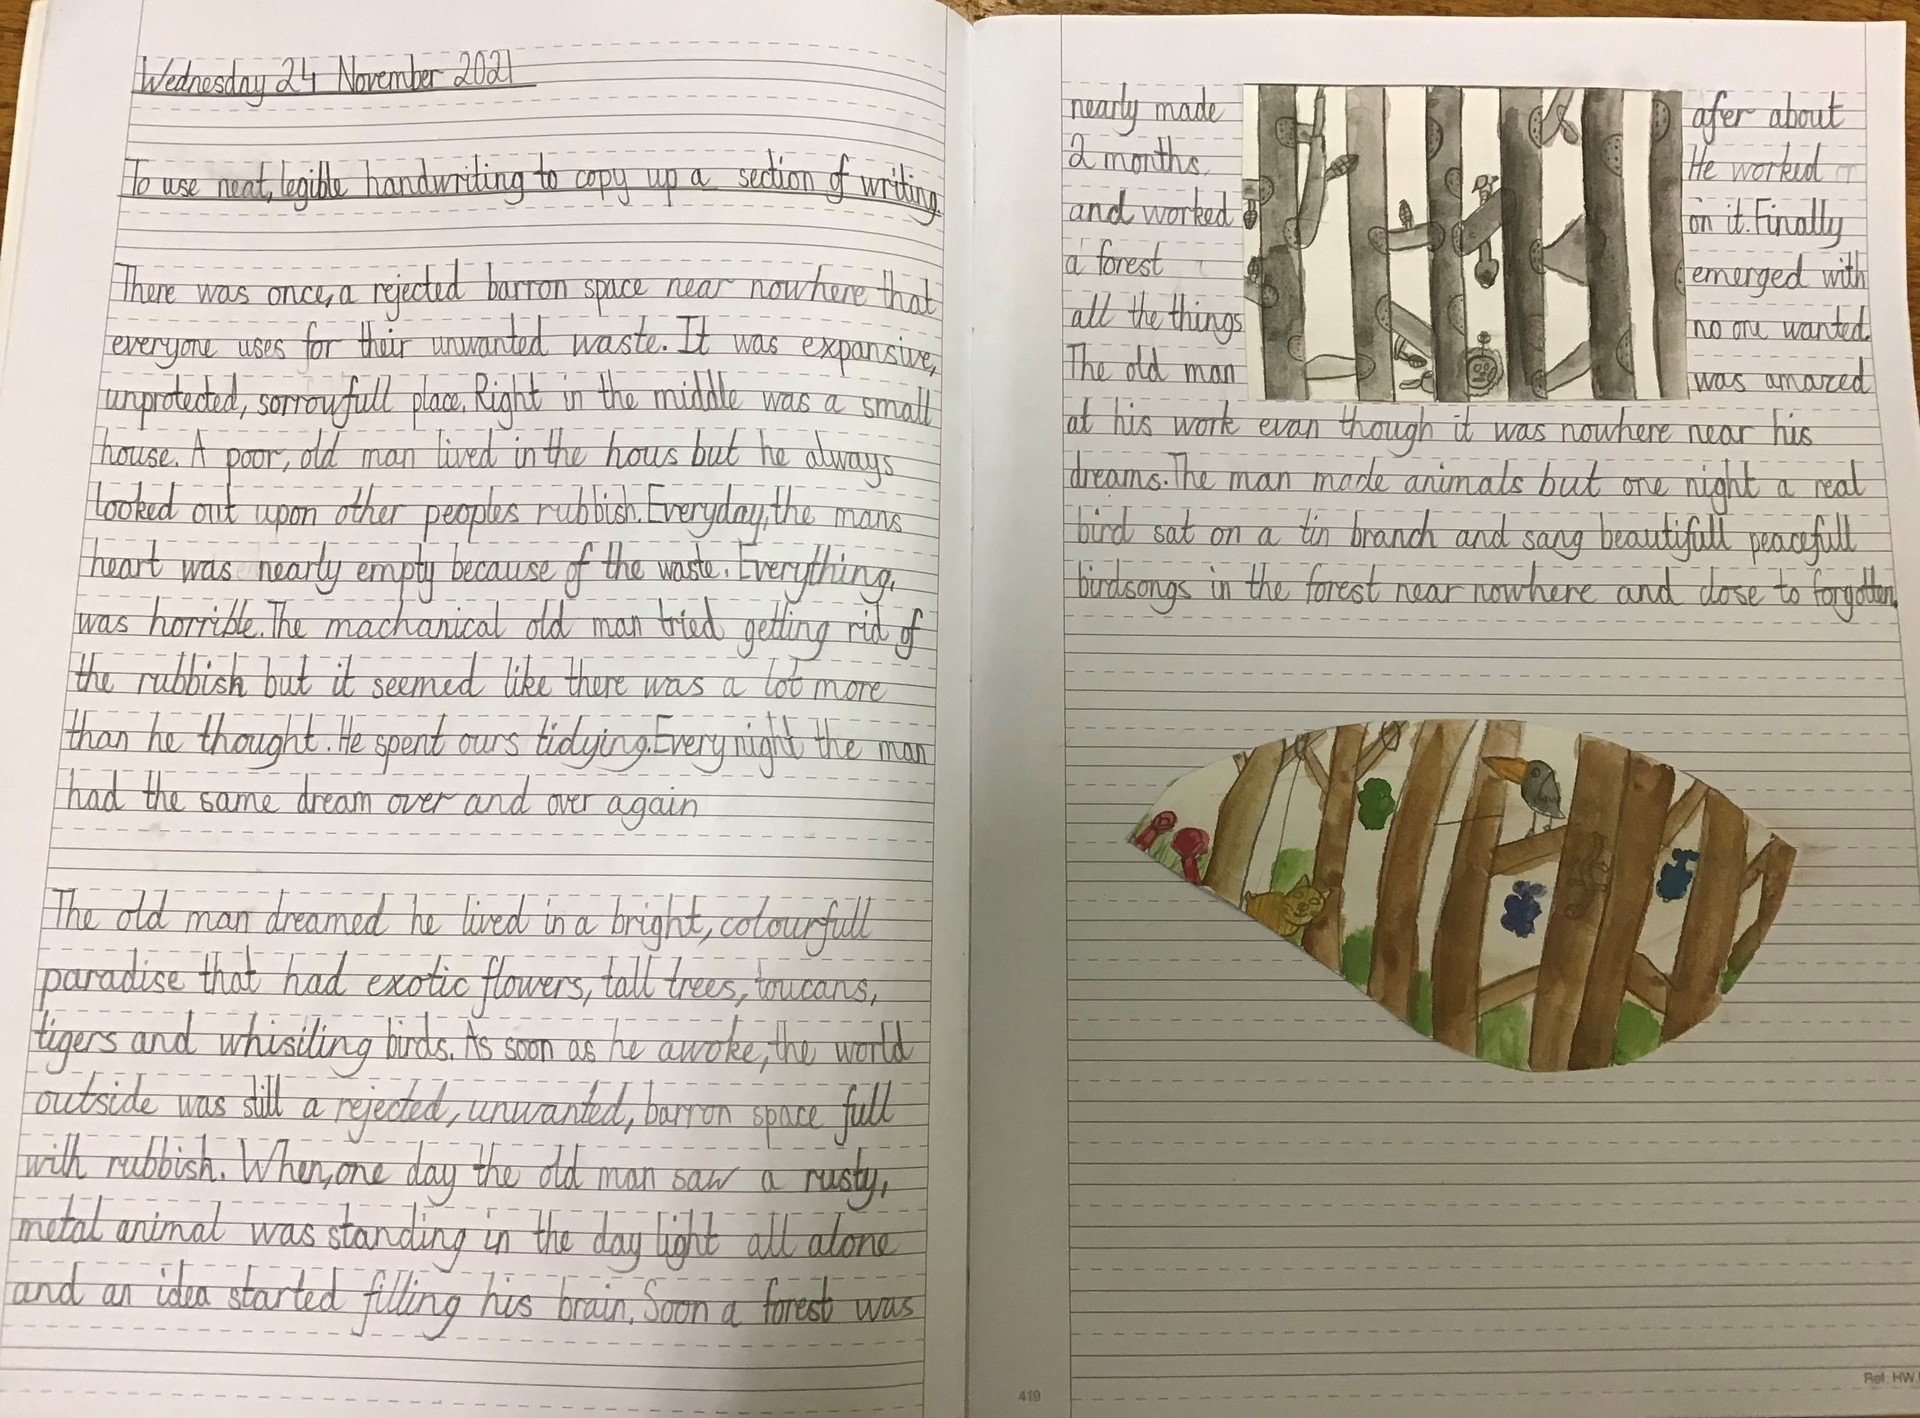 Wednesday 24 November 2021
To use neat, legible handwriting to copy up a section of writing.
There was once, a rejected barron space near nowhere that
everyone uses for their unwanted waste. It was expansive,
unprotected, sorrowfull place. Right in the middle was a small
house. A poor, old man lived in the hous but he always
looked out upon other peoples rubbish. Everyday, the mans
heart was nearly empty because of the waste. Everything,
was horrible. The machanical old man tried getting rid of
the rubbish but it seemed like there was a lot more
than he thought. He spent ours tidying. Every night the man
had the same dream over and over again
The old man dreamed he lived in a bright, colourfull
paradise that had exotic flowers, tall trees, toucans,
tigers and whisiling birds. As soon as he awoke, the world
outside was still a rejected, unwanted, barron space full
with rubbish. When, one day the old man saw a rusty,
metal animal was standing in the day light all alone
and an idea started filling his brain. Soon a forest was
nearly made afer about
2 months. He worked
and worked on it. Finally
a forest emerged with
all the things no one wanted.
The old man was amazed
at his work evan though it was nowhere near his
dreams. The man made animals but one night a real
bird sat on a tin branch and sang beautifull peacefull
birdsongs in the forest near nowhere and close to forgotten.
419
Ref HW